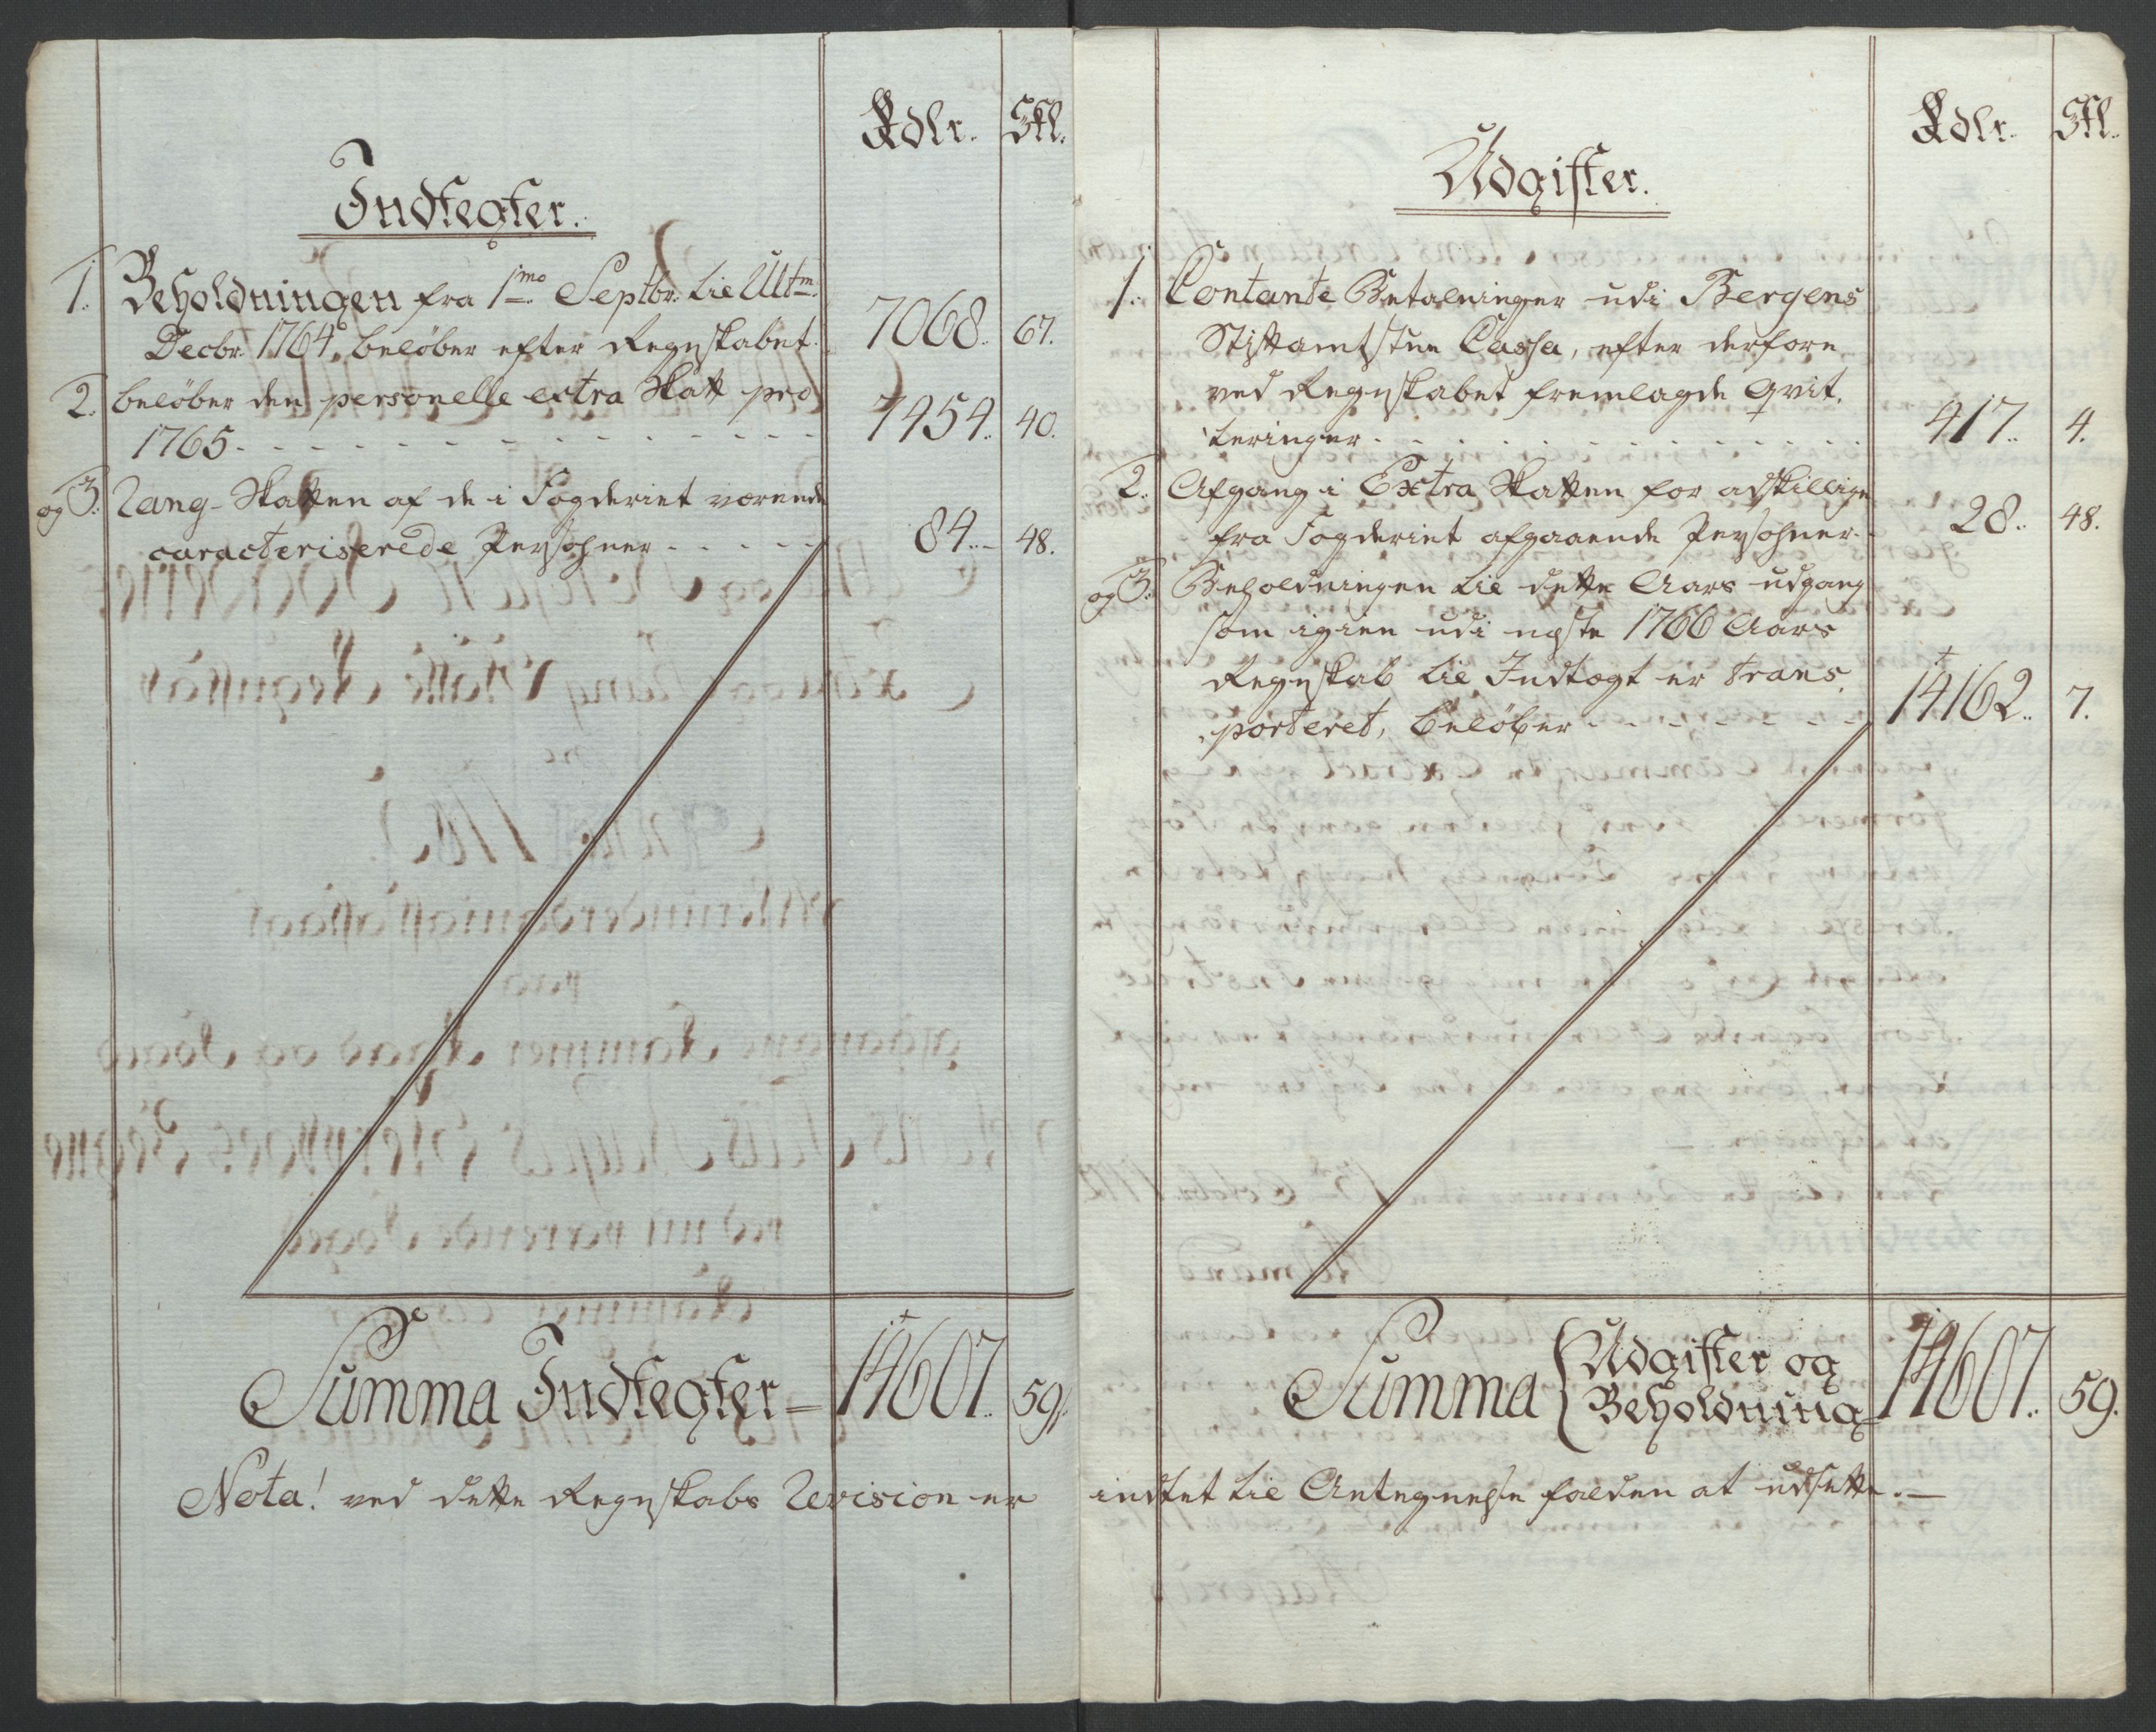 Rdlr. Skl.
Indtegter.
1. Beholdningen fra 1mo Septbr. til Ultm.
Decbr. 1764, beløber efter Regnskabet. 7068.. 67.
2. beløber den personelle extra Skatt pro
1765 - - - 7454.. 40.
og 3. Rang-Skatten af de i Fogderiet værende
caracteriserede Persohner - - - 84.. 48.
Summa Indtegter - 14607.. 59.
Nota! ved dette Regnskabs Revision er
Rdlr. Skl.
Udgifter.
1. Contante Betalninger udi Bergens
Stiftamtstue Cassa, efter derfore
ved Regnskabet fremlagde Qvit-
teringer - - - 417.. 4.
2. Afgang i Extra Skatten for adskillige
fra Fogderiet afgaaende Persohner - 28.. 48.
og 3. Beholdningen til dette Aars udgang
som igien udi neste 1766 Aars
Regnskab til Indtægt er trans-
porteret, beløber - - - 14162.. 7.
Summa { Udgifter og
Beholdning - 14607.. 59.
indtet til Antegnelse falden at udsette. -